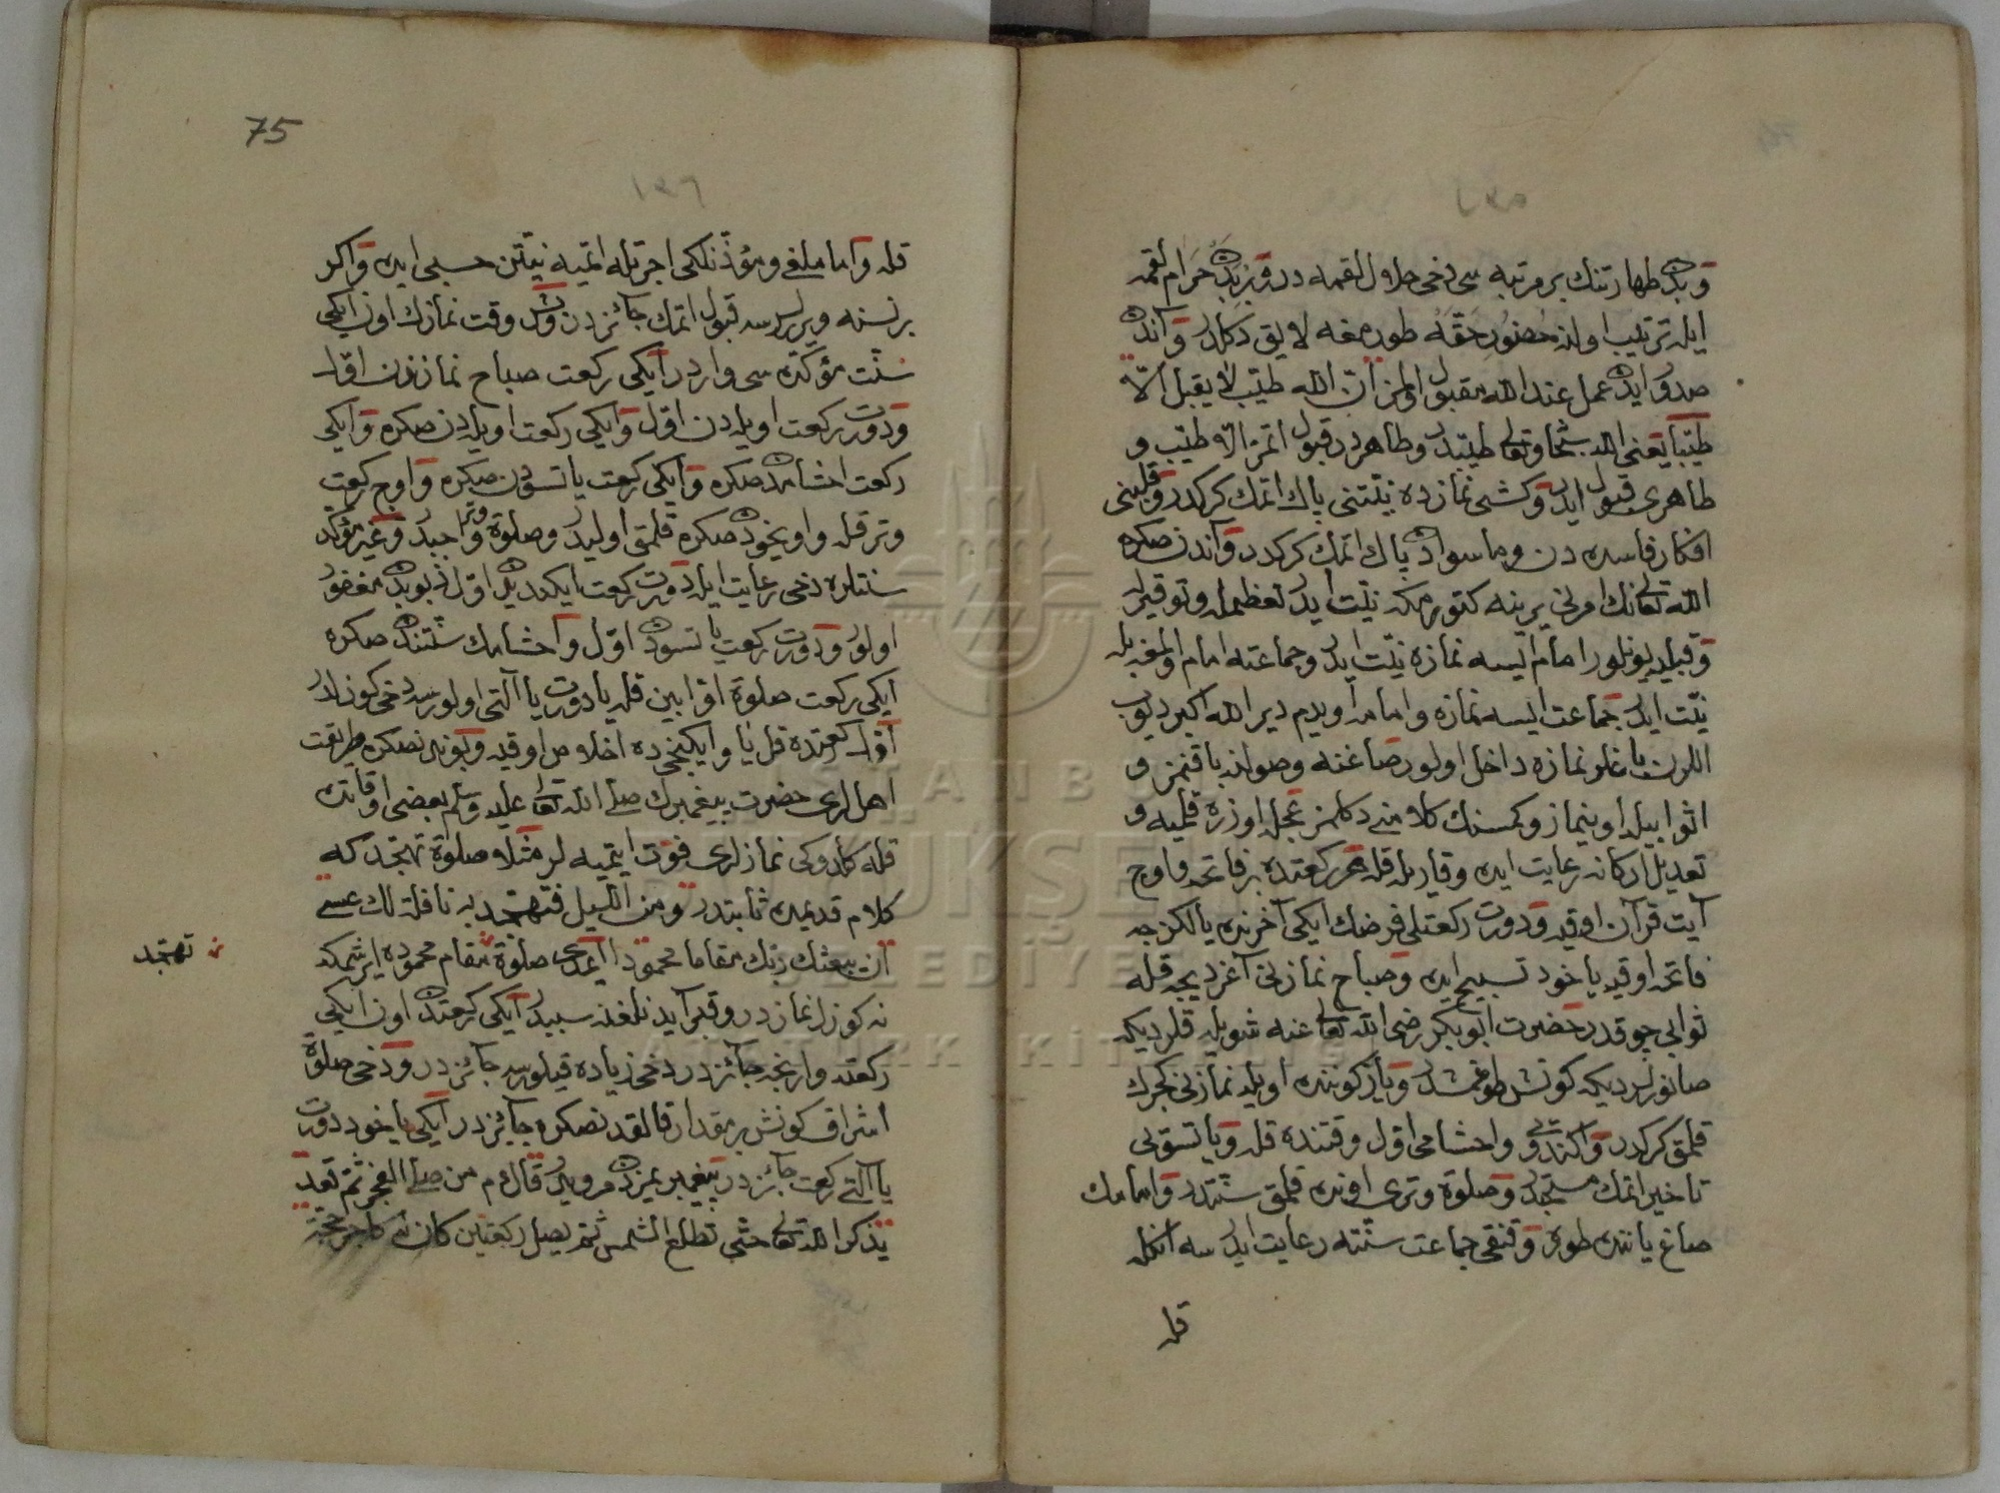 و بدن طهارتنك بر مرتبه سی دخی حلال لقمه در و زیرا بدن حرام لقمه
ایله ترتیب اولنه حضور حقه طورمغه لایق دكلدر و آندن
صدور ایدن عمل عند الله مقبول اولمز ان الله طیب لا یقبل الا
طیبا یعنی الله سبحانه و تعالی طیبدر و طاهردر قبول اتمز الا طیب و
طاهری قبول ایدر و كشی نمازده نیتنی پاك اتمك كركدر و قلبنی
افكار فاسده دن و ماسوادن پاك اتمك كركدر و آندن صكره
الله تعالینك امرنی یرینه كتورمكه نیت ایدر تعظیمله و توقیرله
و قبلیه یونلور امام ایسه نمازه نیت ایدر و جماعته امام اولمغیله
نیت ایدر جماعت ایسه نمازه و امامه اویدم دیر الله اكبر دیوب
اللرن باغلر نمازه داخل اولور صاغنه و صولنه باقنمز و
اثوابیله اوینماز و كمسنك كلامنی دكلمز عجله اوزره قلمیه و
تعدیل اركانه رعایت ایده و قاریله قله هر ركعتده بر فاتحه و اوچ
آیت قرآن اوقیه و دورت ركعتلی فرضك ایكی آخرنده یالكزجه
فاتحه اوقیه یا خود تسبیح ایده و صباح نمازنی آغردیجه قله
ثوابی چوقدر حضرت ابو بكر رضی الله تعالی عنه شویله قلردیكه
صانورلردیكه كونش طوغمشدر و یاز كوننده اویله نمازنی كجرك
قلمق كركدر و اكندیی و اخشامی اول وقتنده قله و یاتسویی
تاخیر اتمك مستحبدر و صلوة وتری اونده قلمق سنتدر و امامك
صاغ یاننده طوره و قنقی جماعت سنته رعایت ایدرسه انكله
قله
75
١٤٦
قله و اماملغی و مؤذنلكی اجرتله اتمیه نیتن حسبی ایده و اكر
بر نسنه ویرلرسه قبول اتمك جائزدر و بش وقت نمازك اون ایكی
سنت مؤكده سی واردر ایكی ركعت صباح نمازندن اول
و دورت ركعت اویله دن اول و ایكی ركعت اویله دن صكره و ایكی
ركعت اخشامدن صكره و ایكی ركعت یاتسودن صكره و اوچ ركعت
وتر قله و اویخودن صكره قلمق اولیدر و صلوة وتر واجبدر و غیر مؤكد
سنتلره دخی رعایت ایله دورت ركعت ایكندیدن اول
اولور و دورت ركعت یاتسودن اول و اخشامك سنتندن صكره
ایكی ركعت صلوة اوابین قله یا دورت یا آلتی اولورسه دخی كوزلدر
اول ركعتده قل یا و ایكنجیده اخلاص اوقیه و بوندن صكره طریقت
اهللری حضرت پیغمبرك صلی الله تعالی علیه وسلم بعضی اوقاتده
قله كلدوكی نمازلری فوت ایتمیه لر مثلا صلوة تهجد كه
كلام قدیمده ثابتدر و من اللیل فتهجد به نافلة لك عسی
ان یبعثك ربك مقاما محمودا صلوة مقام محموده ایرشمكه
تهجد
نه كوزل نمازدر و قبر آیدنلغنه سببدر ایكی ركعتدن اون ایكی
ركعته وارنجه جائزدر دخی زیاده قیلورسه جائزدر و دخی صلوة
اشراق كونش بر مقدار قالقدقدنصكره جائزدر ایكی یا خود دورت
یا آلتی ركعت جائزدر پیغمبریمزدن مرویدر قال عم من صلی الفجر ثم قعد
یذكر الله تعالی حتی تطلع الشمس ثم یصلی ركعتین كان له كاجر حجة